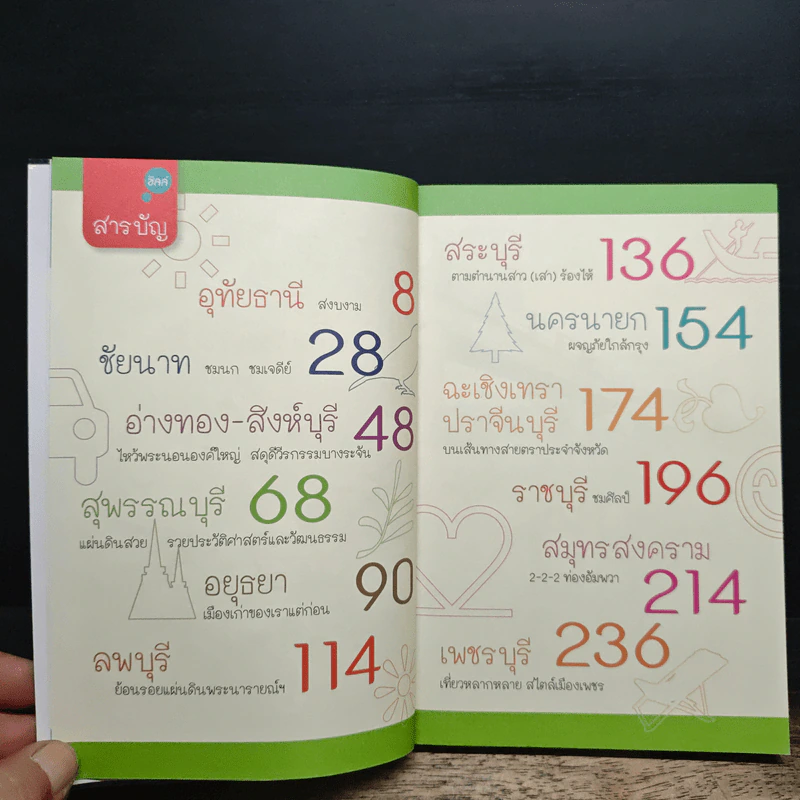 ฮิลล์
สารบัญ
อุทัยธานี สงบงาม 8
ชัยนาท ชมนก ชมเจดีย์ 28
อ่างทอง-สิงห์บุรี 48
ไหว้พระนอนองค์ใหญ่ สดุดีวีรกรรมบางระจัน
สุพรรณบุรี 68
แผ่นดินสวย รวยประวัติศาสตร์และวัฒนธรรม
อยุธยา 90
เมืองเก่าของเราแต่ก่อน
ลพบุรี 114
ย้อนรอยแผ่นดินพระนารายณ์ฯ
สระบุรี 136
ตามตำนานสาว (เสา) ร้องไห้
นครนายก 154
ผจญภัยใกล้กรุง
ฉะเชิงเทรา
ปราจีนบุรี 174
บนเส้นทางสายตราประจำจังหวัด
ราชบุรี ชมศิลป์ 196
สมุทรสงคราม
2-2-2 ท่องอัมพวา 214
เพชรบุรี 236
เที่ยวหลากหลาย สไตล์เมืองเพชร